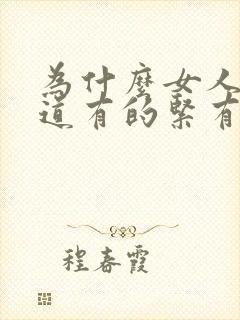 為什麼女人
道有的緊有
程春霞